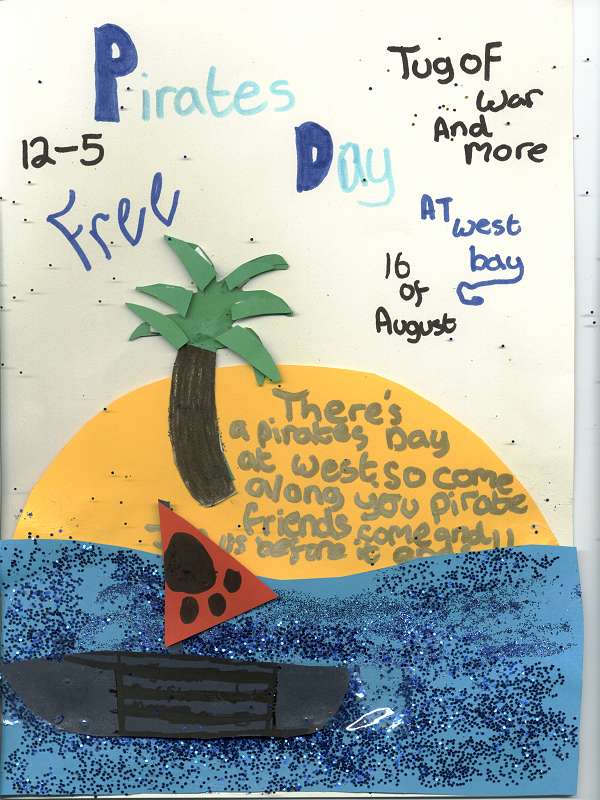 Pirates
Day
12-5
Free
Tug of
war
And
more
AT
west
bay
16
of
August
There's
a pirates Day
at west, so come
along you pirate
friends, come and
us before it ends!!